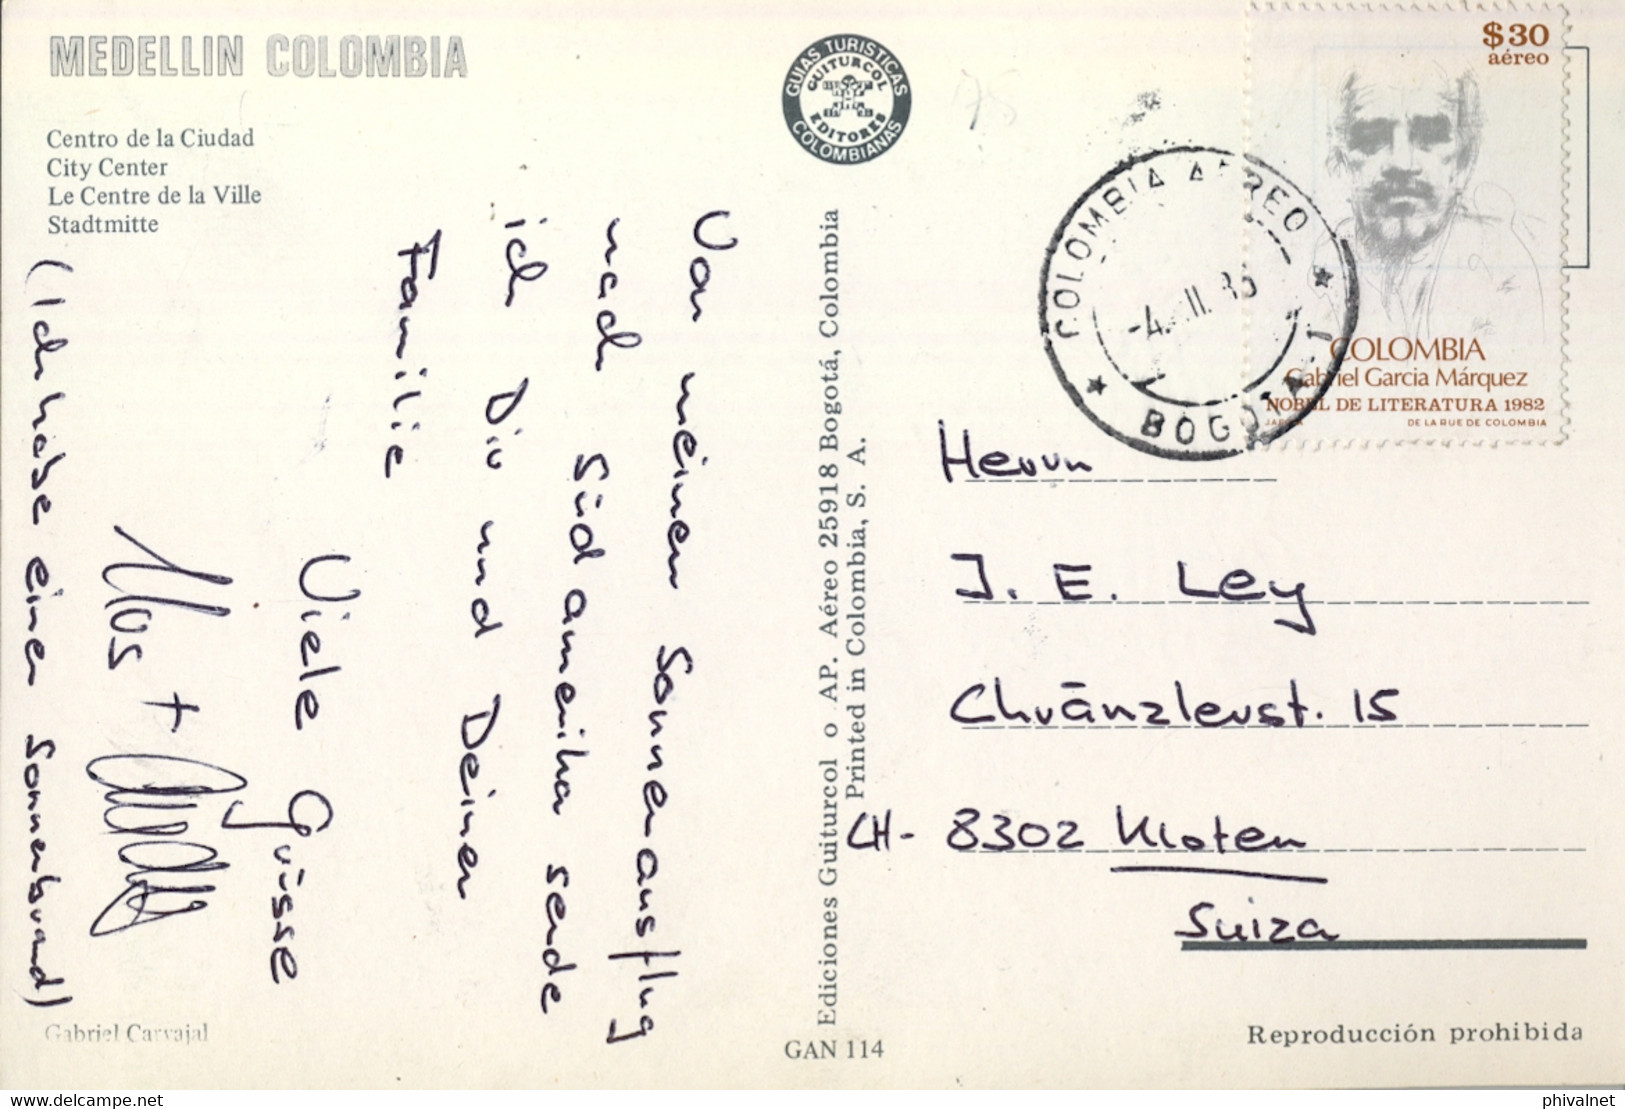 MEDELLIN COLOMBIA
Centro de la Ciudad
City Center
Le Centre de la Ville
Stadtmitte
GUIAS TURISTICAS
GUITURCOL
EDITORES
COLOMBIANAS
$30
aéreo
COLOMBIA
Gabriel Garcia Márquez
NOBEL DE LITERATURA 1982
DE LA RUE DE COLOMBIA
COLOMBIA AEREO
-4. II.
BOGOTA
Von meinem Sonnenausflug
nach Südamerika sende
ich Dir und Deiner
Familie
Viele Grüsse
(Ich habe einen Sonnenbrand)
Ediciones Guiturcol o AP. Aéreo 25918 Bogotá, Colombia
Printed in Colombia, S. A.
Herrn
J. E. Ley
Chränzlerst. 15
CH- 8302 Kloten
Suiza
Gabriel Carvajal
GAN 114
Reproducción prohibida
delcampe.net
phivalnet